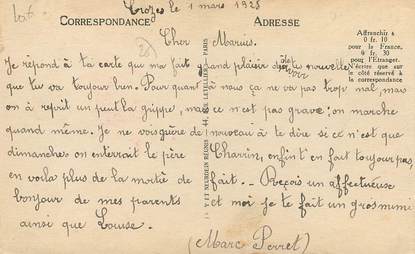 Trozes le 1 mars 1928
CORRESPONDANCE
ADRESSE
Affranchir à
0 fr. 10
pour la France.
9 fr. 30
pour l'Etranger.
N'écrire que sur
le côté réservé à
la correspondance
Cher Marius.
Je répond à ta carte que ma fait grand plaisir de savoir de tes nouvelle
que tu va toujour bien. Pour quant à nous ça ne va pas trop mal, mais
on à reprit un peut la grippe, mais ce n'est pas grave on marche
quand même. Je ne vois guère de nouveau à te dire si ce n'est que
dimanche on enterrait le père Charrin, enfin t'en fait toujour pas,
en voila plus de la moitié de fait. - Reçois un affectueuse
bonjour de mes parents et moi je te fait un gros mimi
ainsi que Louise.
(Marc Perret)
LEVY ET NEURDEIN RÉUNIS, 44, RUE LETELLIER - PARIS